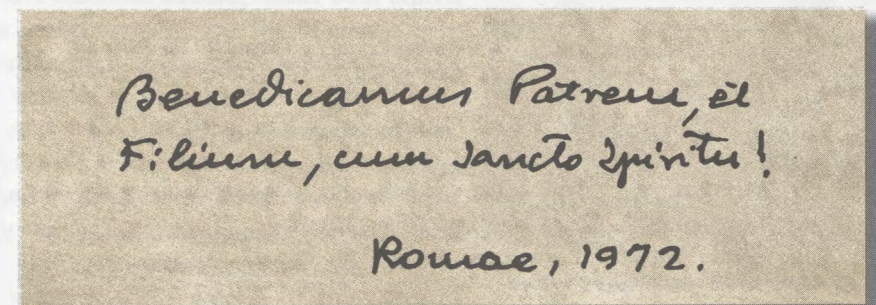 Benedicamus Patrem, et
Filium, cum Sancto Spiritu!
Romae, 1972.